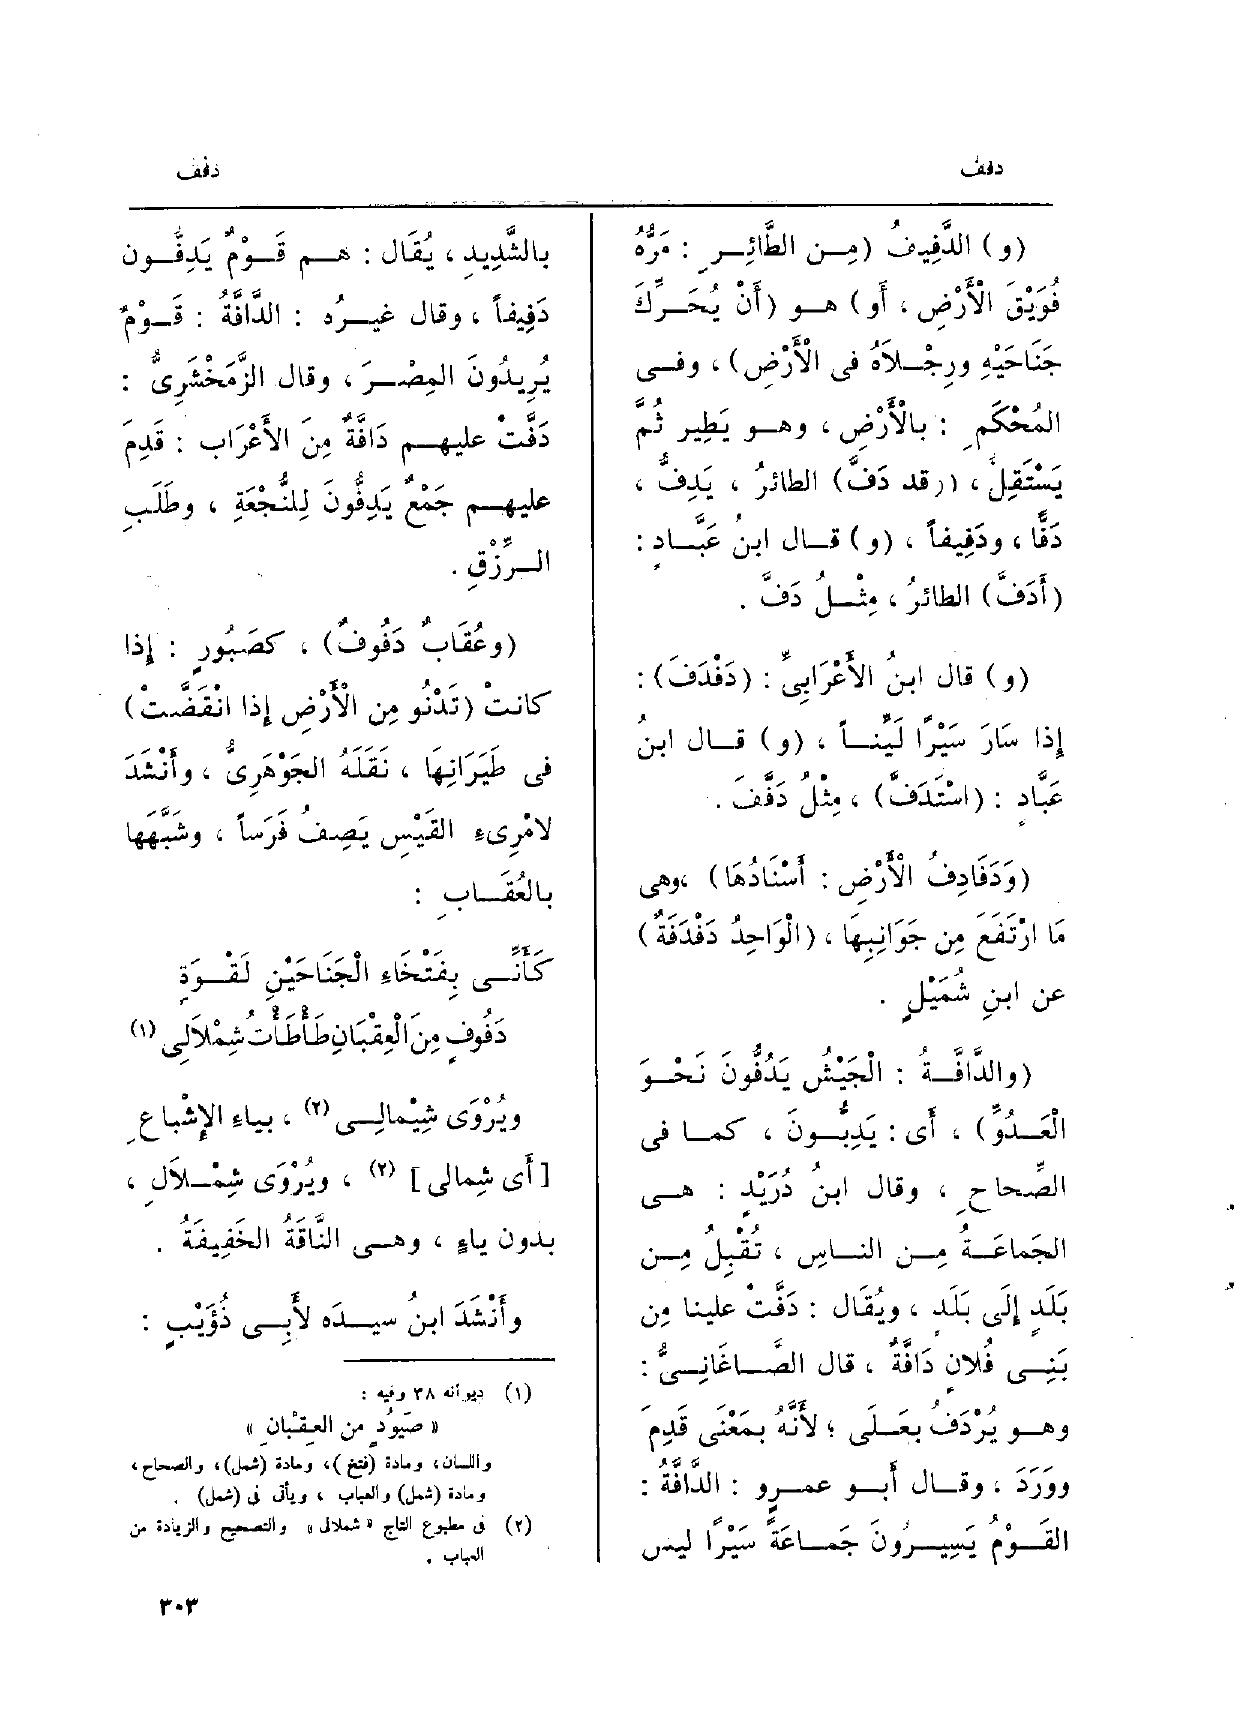 دفف
دفف
(و) الدَّفِيفُ (مِـن الطَّائِـرِ : مَرُّهُ
فُوَيْقَ الْأَرْضِ ، أَو) هـو (أَنْ يُحَـرِّكَ
جَنَاحَيْهِ ورِجْـلَاهُ فى الْأَرْضِ) ، وفـى
المُحْكَمِ : بالْأَرْضِ ، وهـو يَطِير ثُمَّ
يَسْتَقِلُّ ، (وقد دَفَّ) الطائرُ ، يَدِفُّ ،
دَفًّا ، ودَفِيفاً ، (و) قـال ابنُ عَبَّـادٍ :
(أَدَفَّ) الطائرُ ، مِثْـلُ دَفَّ .
(و) قال ابنُ الأَعْرَابِىِّ : (دَفْدَفَ) :
إذا سَارَ سَيْرًا لَيِّنـاً ، (و) قـال ابنُ
عَبَّادٍ : (اسْتَدَفَّ) ، مِثْلُ دَفَّفَ .
(وَدَفَادِفُ الْأَرْضِ : أَسْنَادُهَا) ،وهى
مَا ارْتَفَعَ مِن جَوَانِبِهَا ، (الْوَاحِدُ دَفْدَفَةٌ)
عن ابنِ شُمَيْلٍ .
(والدَّافَّـةُ : الْجَيْشُ يَدُفُّونَ نَحْـوَ
الْعَـدُوِّ) ، أَى : يَدِبُّـونَ ، كمـا فى
الصِّحاحِ ، وقال ابنُ دُرَيْدٍ : هـى
الجَماعَـةُ مِـن النـاسِ ، تُقْبِلُ مِـن
بَلَدٍ إلَى بَلَدٍ ، ويُقَال : دَفَّتْ علينا مِن
بَنِـى فُلَانٍ دَافَّةٌ ، قال الصَّـاغَانِـىُّ :
وهـو يُرْدَفُ بعَلَـى ؛ لأَنَّهُ بمَعْنَى قَدِمَ
ووَرَدَ ، وقـال أَبـو عمـرٍو : الدَّافَّةُ :
القَـوْمُ يَسِيـرُونَ جَمـاعَةً سَيْرًا ليس
بالشَّدِيدِ ، يُقَال : هـم قَـوْمٌ يَدِفُّـون
دَفِيفاً ، وقال غيـرُه : الدَّافَّةُ : قَـوْمٌ
يُرِيدُونَ المِصْـرَ ، وقال الزَّمَخْشَرِىُّ :
دَفَّتْ عليهـم دَافَّةٌ مِنَ الأَعْرَابِ : قَدِمَ
عليهـم جَمْعٌ يَدِفُّونَ لِلنُّجْعَةِ ، وطَلَبِ
الـرِّزْقِ .
(وعُقَابٌ دَفُوفٌ) ، كصَبُورٍ : إذا
كانتْ (تَدْنُو مِن الْأَرْضِ إذا انْقَضَّتْ)
فى طَيَرَانِها ، نَقَلَهُ الجَوْهَرِىُّ ، وأَنْشَدَ
لامْرِىءِ القَيْسِ يَصِفُ فَرَساً ، وشَبَّهَها
بالعُقَـابِ :
كَأَنِّـى بِفَتْخَاءِ الْجَنَاحَيْنِ لَقْـوَةٍ
دَفُوفٍ مِنَ الْعِقْبَانِ طَأْطَأْتُ شِمْلَالِى (١)
ويُرْوَى شِيْمالِـى (٢) ، بياءِ الإِشْبَاعِ
[أَى شِمالى] (٢) ، ويُرْوَى شِمْـلَالِ ،
بدون ياءٍ ، وهـى النَّاقَةُ الخَفِيفَةُ .
وأَنْشَدَ ابنُ سِيـدَه لأَبِـى ذُؤَيْبٍ :
(١) ديوانه ٣٨ وفيه :
« صَيُودٍ من العِقْبَانِ »
واللسان، ومادة (فتخ )، ومادة (شمل)، والصحاح،
ومادة (شمل) والعباب ، ويأتى فى (شمل) .
(٢) فى مطبوع التاج « شملالى » والتصحيح والزيادة من
العباب .
٣٠٣